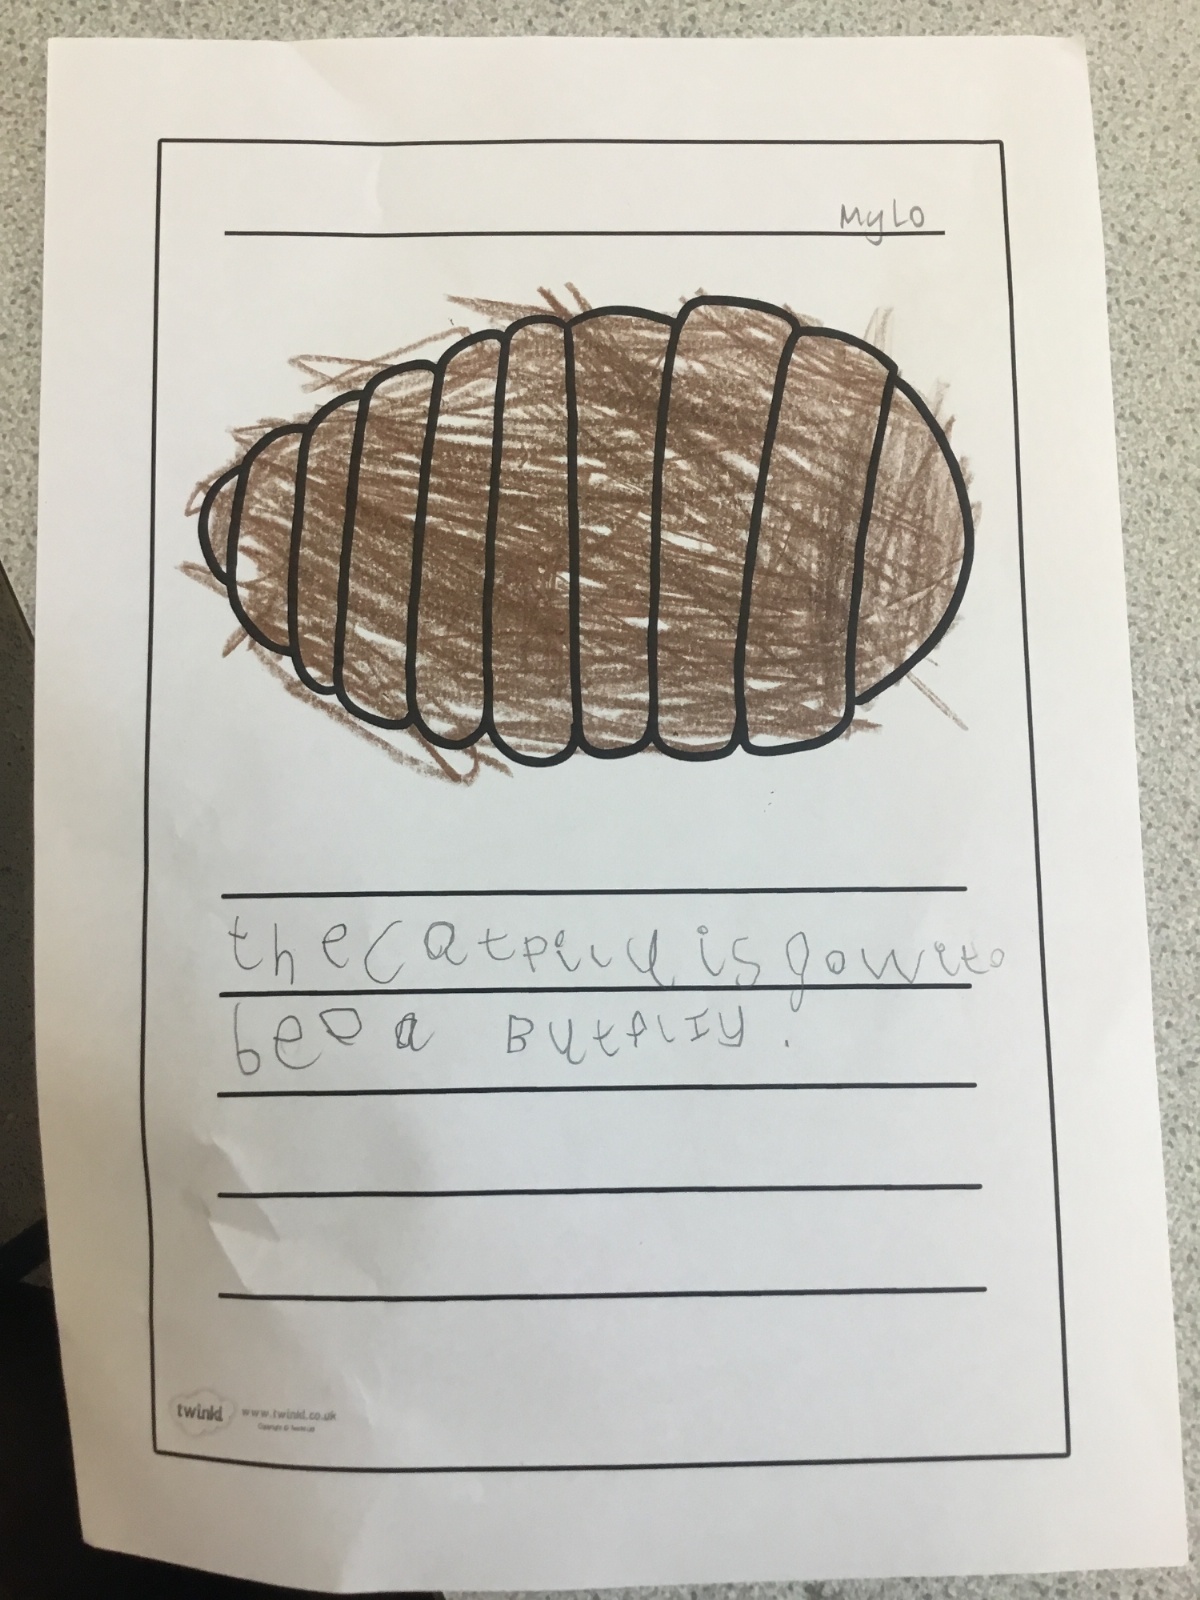 MyLo
the catpilul is gowito
beo a Butflly.
twinkl www.twinkl.co.uk
Copyright © Twinkl Ltd